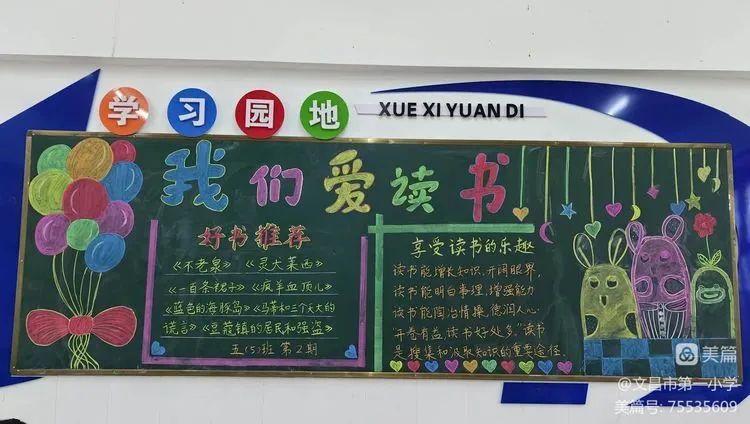 学习园地
XUE XI YUAN DI
我们爱读书
好书推荐
《不老泉》 《灵犬莱西》
《一百条裙子》《疯羊血顶儿》
《蓝色的海豚岛》《马蒂和三个天大的
谎言》《豆蔻镇的居民和强盗》
五(5)班 第2期
享受读书的乐趣
读书能增长知识,开阔眼界,
读书能明白事理,增强能力
读书能陶冶情操,德润人心
开卷有益,读书好处多,读书
是搜集和汲取知识的重要途径.
美篇
@文昌市第一小学
美篇号: 75535609